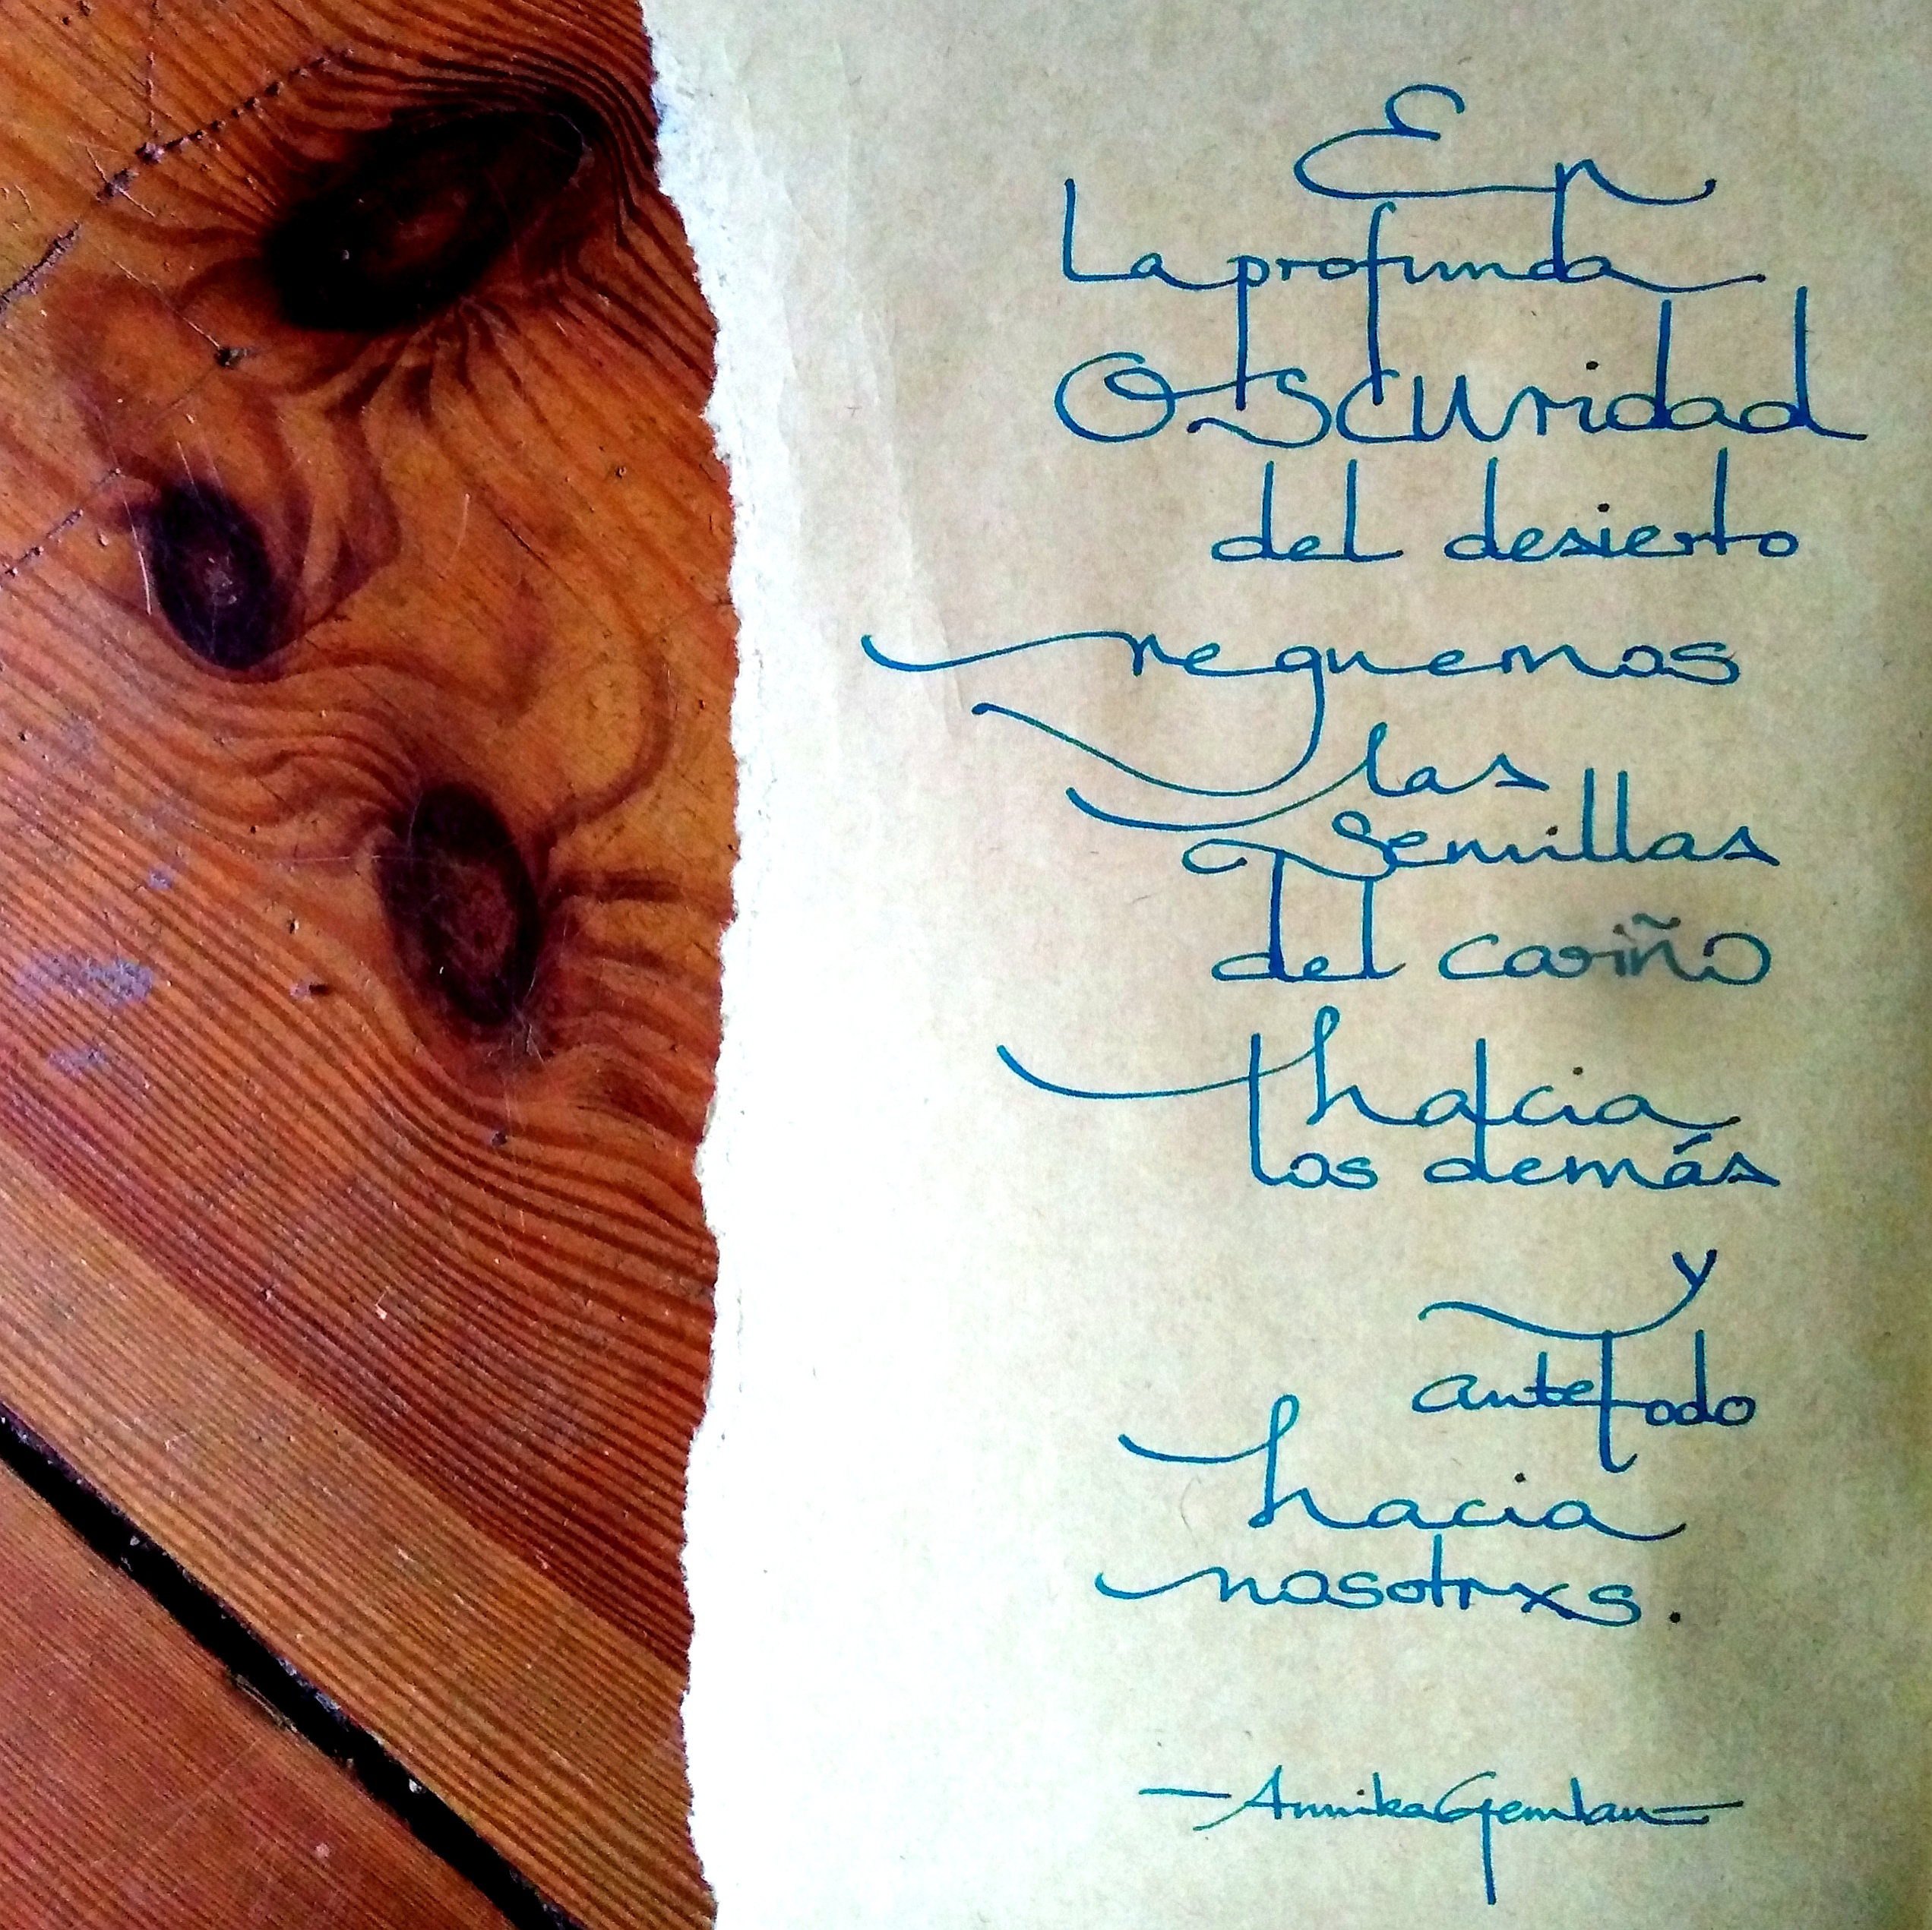 En
La profunda
Obscuridad
del desierto
reguemos
las
Semillas
del cariño
hacia
los demás
y
ante todo
hacia
nosotrxs.